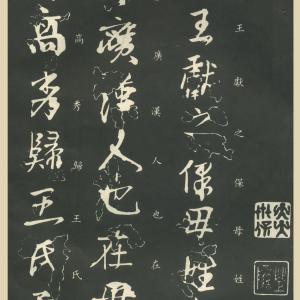 王獻之保母姓
王獻之保母姓
廣漢人也在
廣漢人也在母
高秀歸王氏
高秀歸王氏